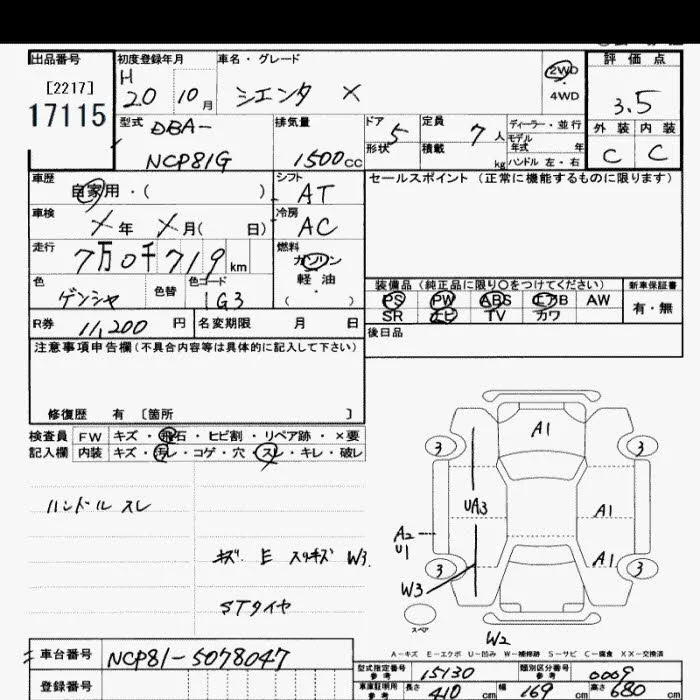 出品番号
[2217]
17115
初度登録年月
H
20 10 月
車名・グレード
シエンタ X
2WD
4WD
評価点
3.5
外装 内装
C C
型式
DBA-
NCP81G
排気量
1500cc
ドア 5
形状
定員 7 人
積載 kg
ディーラー・並行
モデル年式 年
ハンドル 左・右
車歴
自家用・( )
シフト
AT
セールスポイント (正常に機能するものに限ります)
車検
X 年 X 月( 日)
冷房
AC
走行
7万0千719 km
燃料
ガソリン
軽油
( )
色
ゲンシャ
色替
色コード
1G3
装備品 (純正品に限り○をつけてください)
新車保証書
PS PW ABS エアB AW
有・無
SR ナビ TV カワ
R券 11,200 円
名変期限 月 日
後日品
注意事項申告欄 (不具合内容等は具体的に記入して下さい)
修復歴 有 [箇所 ]
検査員
記入欄
FW キズ・飛石・ヒビ割・リペア跡・×要
内装 キズ・汚レ・コゲ・穴・スレ・キレ・破レ
ハンドル スレ
キズ E スリキズ W3
STタイヤ
A1
3
3
UA3
A1
A2
U1
A1
3
3
W3
スペア
W2
A-キズ E-エクボ U-凹み W-補修跡 S-サビ C-腐食 XX-交換済
車台番号 NCP81-5078047
登録番号
型式指定番号
参考
15130
類別区分番号
参考
0009
車庫証明用
参考
長さ 410 cm
幅 169 cm
高さ 680 cm